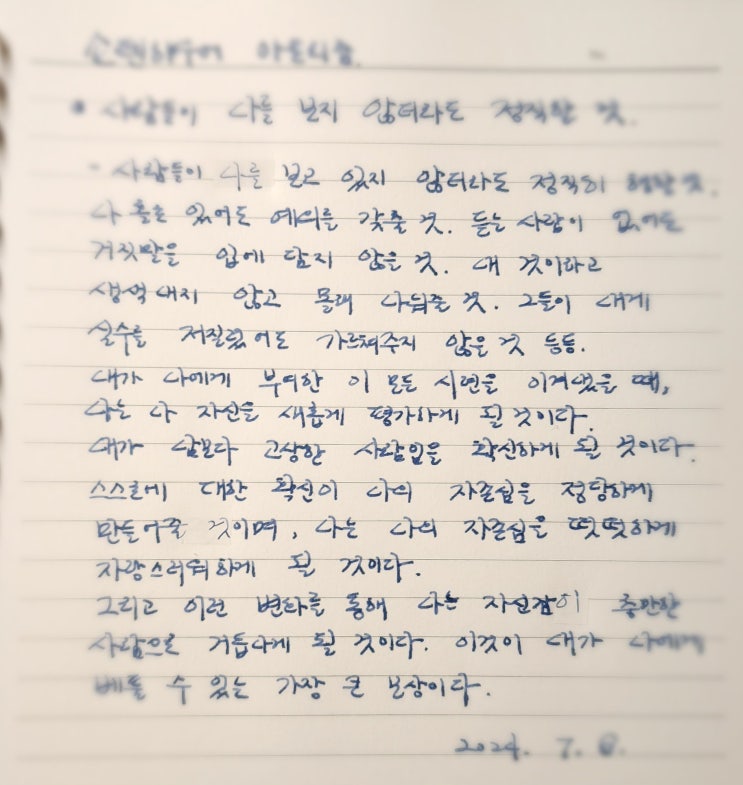 쇼펜하우어 아포리즘.
• 사람들이 나를 보지 않더라도 정직할 것.
- 사람들이 나를 보고 있지 않더라도 정직히 행할 것.
나 홀로 있어도 예의를 갖출 것. 듣는 사람이 없어도
거짓말을 입에 담지 않을 것. 내 것이라고
생색내지 않고 몰래 나눠줄 것. 그들이 내게
실수를 저질렀어도 가르쳐주지 않을 것 등등.
내가 나에게 부여한 이 모든 시련을 이겨냈을 때,
나는 나 자신을 새롭게 평가하게 될 것이다.
내가 남보다 고상한 사람임을 확신하게 될 것이다.
스스로에 대한 확신이 나의 자존심을 정당하게
만들어줄 것이며, 나는 나의 자존심을 떳떳하게
자랑스러워하게 될 것이다.
그리고 이런 변화를 통해 나는 자신감이 충만한
사람으로 거듭나게 될 것이다. 이것이 내가 나에게
베풀 수 있는 가장 큰 보상이다.
2024. 7.